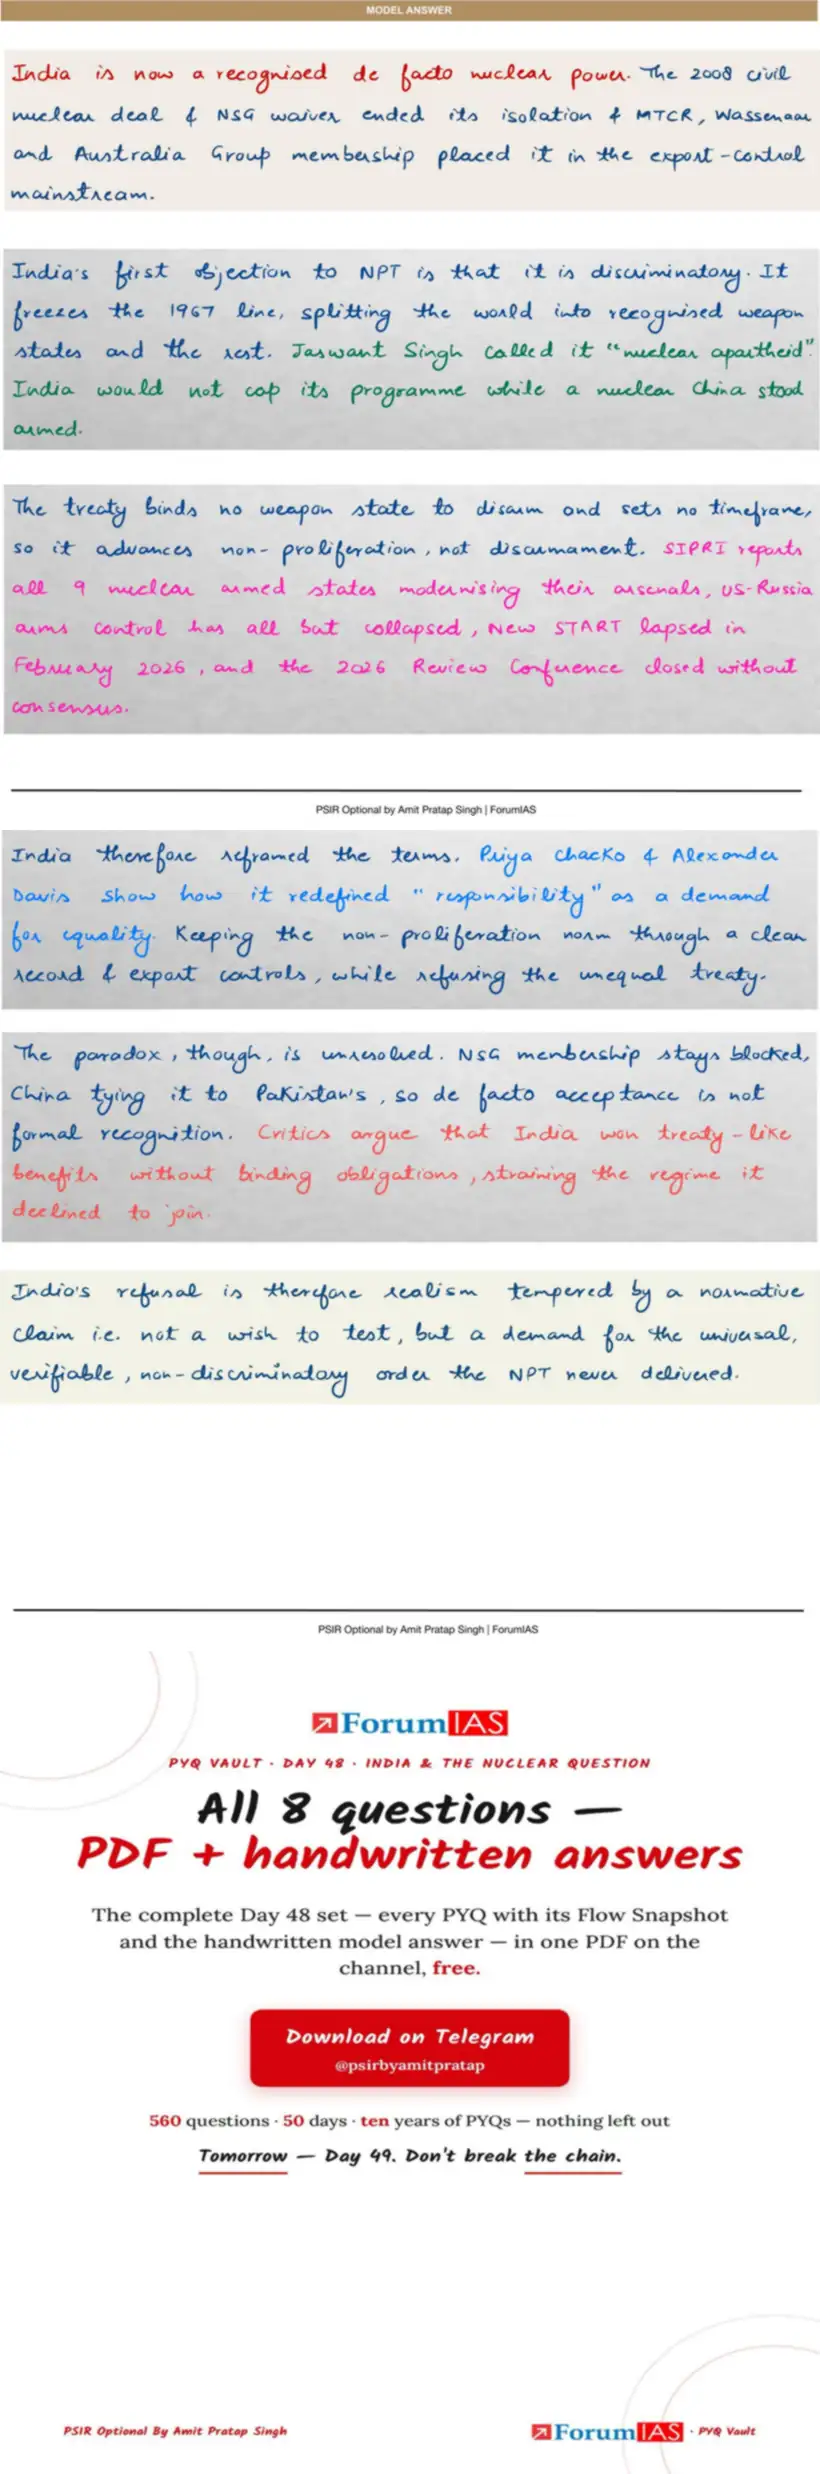 MODEL ANSWER
India is now a recognised de facto nuclear power. The 2008 civil
nuclear deal & NSG waiver ended its isolation & MTCR, Wassenaar
and Australia Group membership placed it in the export-control
mainstream.
India's first objection to NPT is that it is discriminatory. It
freezes the 1967 line, splitting the world into recognised weapon
states and the rest. Jaswant Singh called it "nuclear apartheid".
India would not cap its programme while a nuclear China stood
armed.
The treaty binds no weapon state to disarm and sets no timeframe,
so it advances non-proliferation, not disarmament. SIPRI reports
all 9 nuclear armed states modernising their arsenals, US-Russia
arms control has all but collapsed, New START lapsed in
February 2026, and the 2026 Review Conference closed without
consensus.
PSIR Optional by Amit Pratap Singh | ForumIAS
India therefore reframed the terms. Priya Chacko & Alexander
Davis show how it redefined "responsibility" as a demand
for equality. Keeping the non-proliferation norm through a clean
record & export controls, while refusing the unequal treaty.
The paradox, though, is unresolved. NSG membership stays blocked,
China tying it to Pakistan's, so de facto acceptance is not
formal recognition. Critics argue that India won treaty-like
benefits without binding obligations, straining the regime it
declined to join.
India's refusal is therefore realism tempered by a normative
claim i.e. not a wish to test, but a demand for the universal,
verifiable, non-discriminatory order the NPT never delivered.
PSIR Optional by Amit Pratap Singh | ForumIAS
ForumIAS
PYQ VAULT · DAY 48 · INDIA & THE NUCLEAR QUESTION
All 8 questions —
PDF + handwritten answers
The complete Day 48 set — every PYQ with its Flow Snapshot
and the handwritten model answer — in one PDF on the
channel, free.
Download on Telegram
@psirbyamitpratap
560 questions · 50 days · ten years of PYQs — nothing left out
Tomorrow — Day 49. Don't break the chain.
PSIR Optional By Amit Pratap Singh
ForumIAS · PYQ Vault